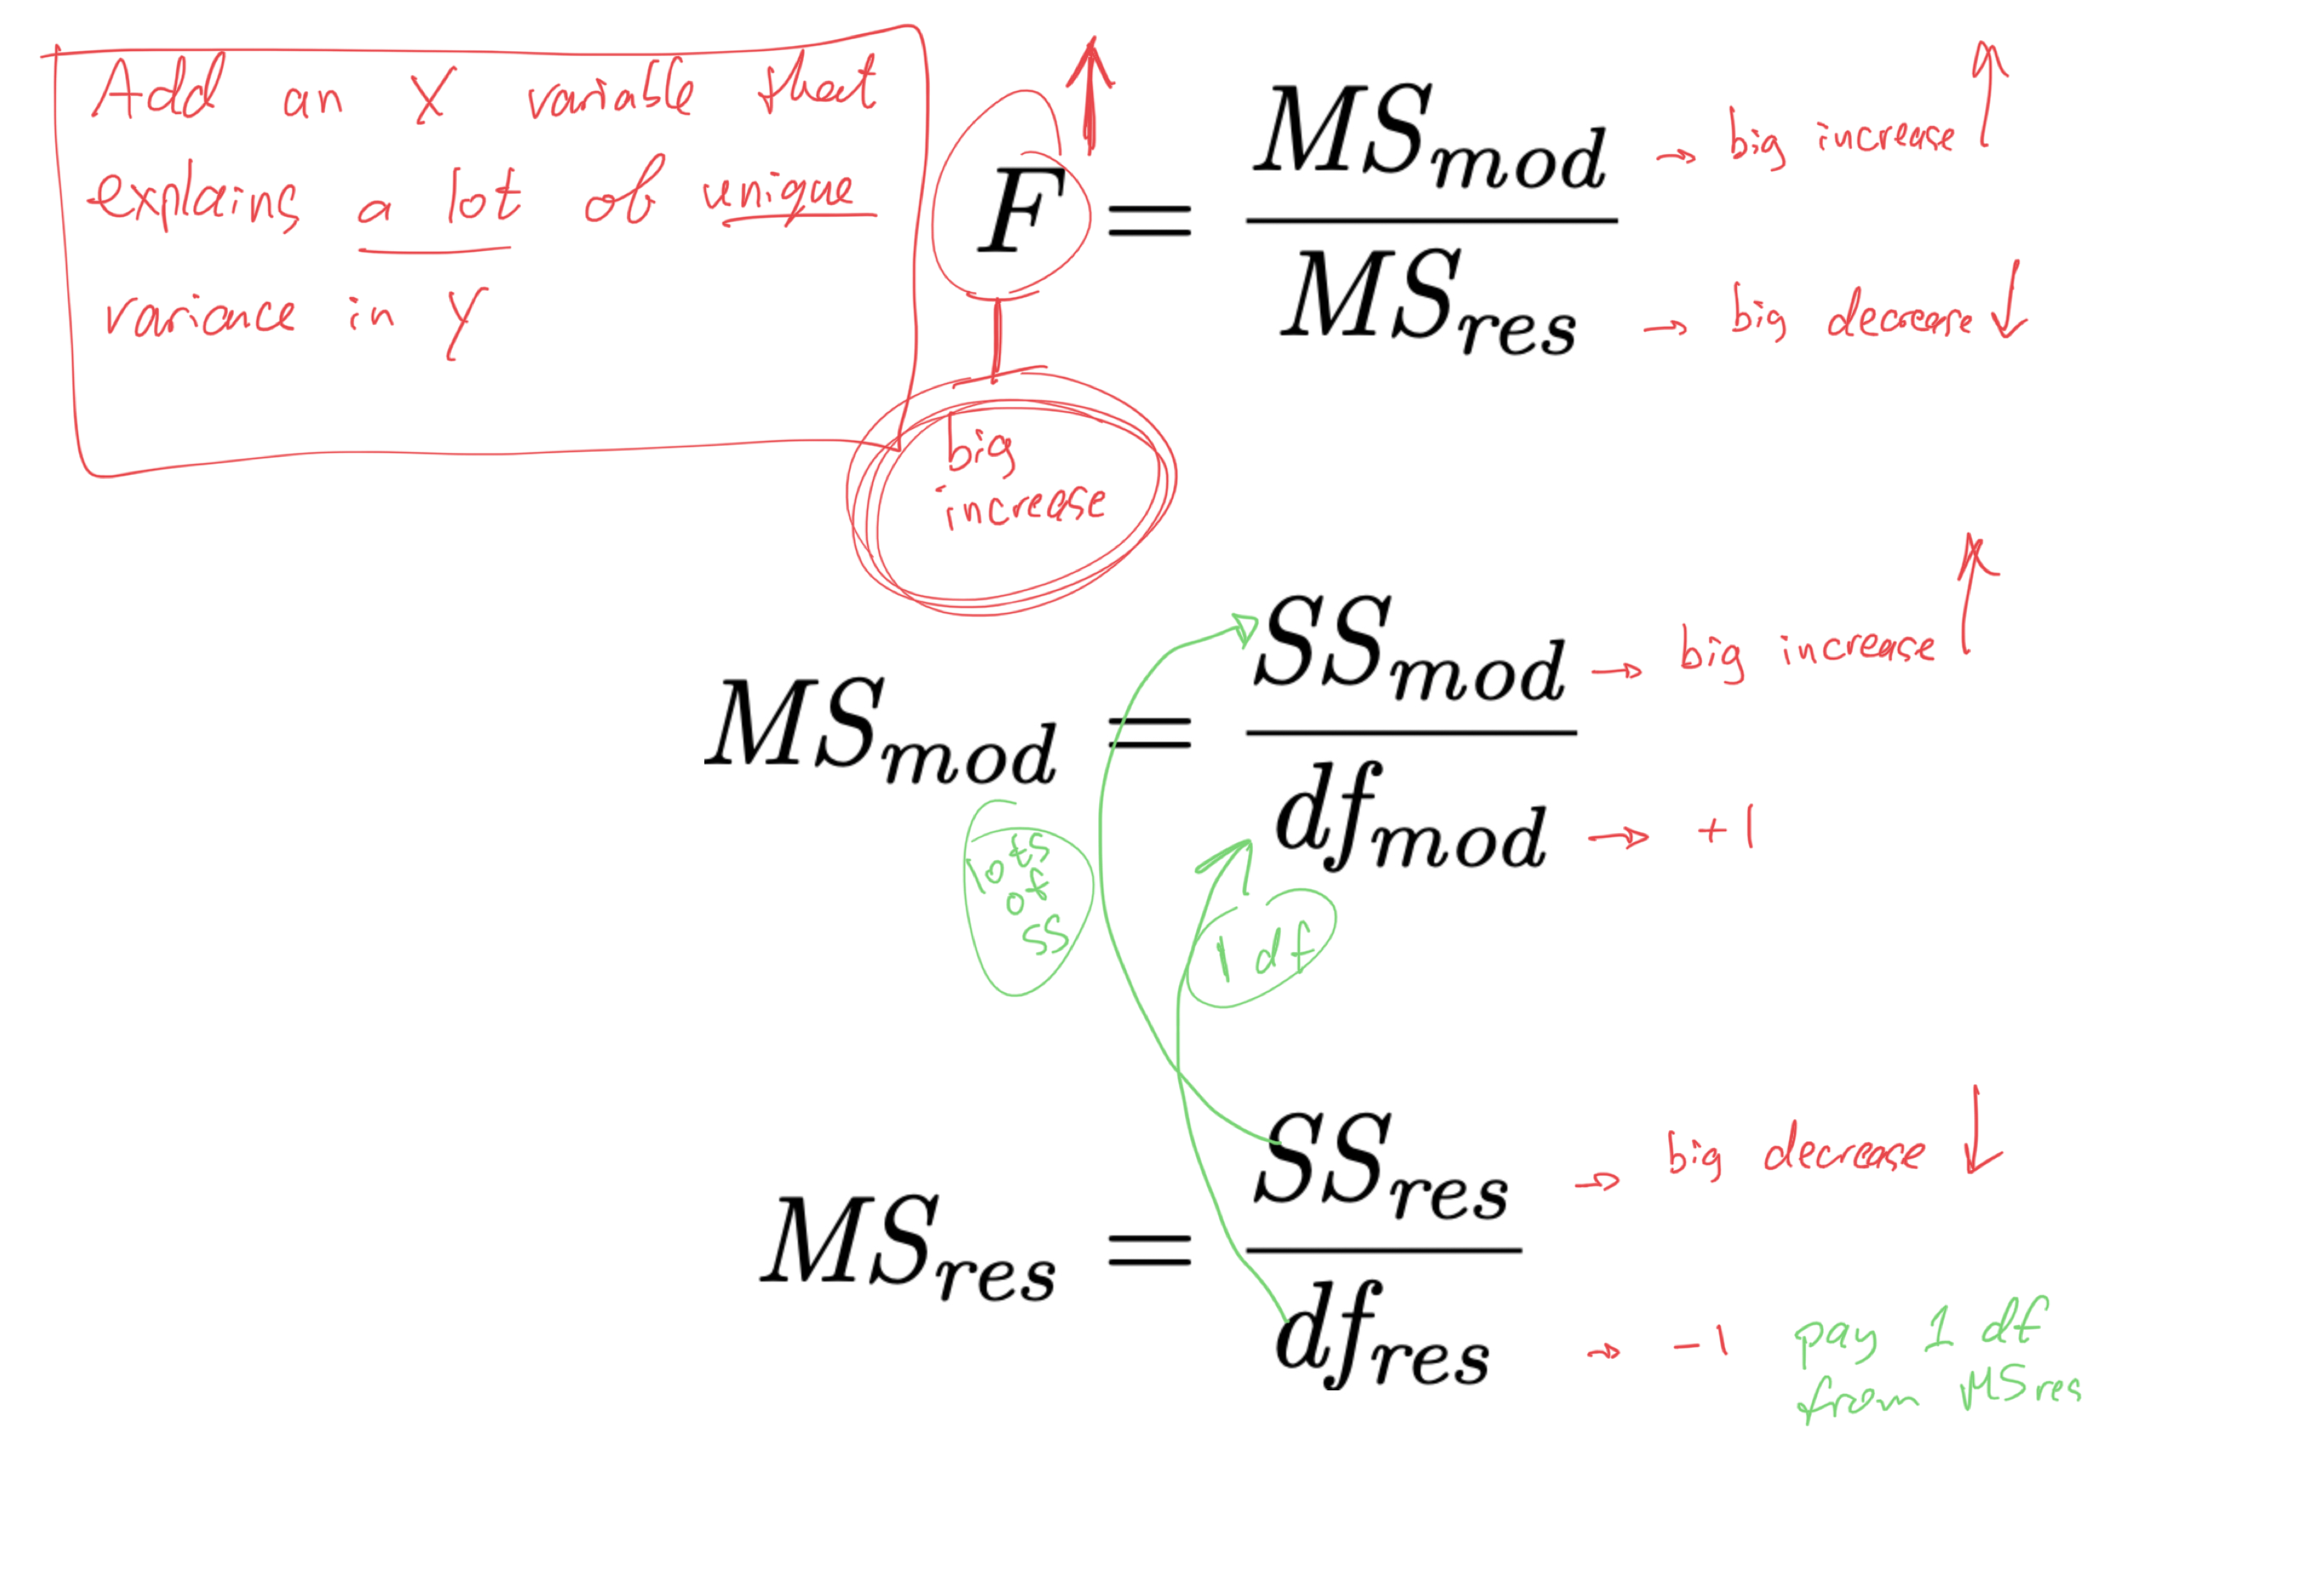 Add an X variable that
explains a lot of unique
variance in Y
F = MSmod / MSres
→ big increase ↑
→ big decrease ↓
big
increase
MSmod = SSmod / dfmod
→ big increase ↑
→ +1
lots
of
SS
1 df
MSres = SSres / dfres
→ big decrease ↓
→ -1
pay 1 df
from MSres